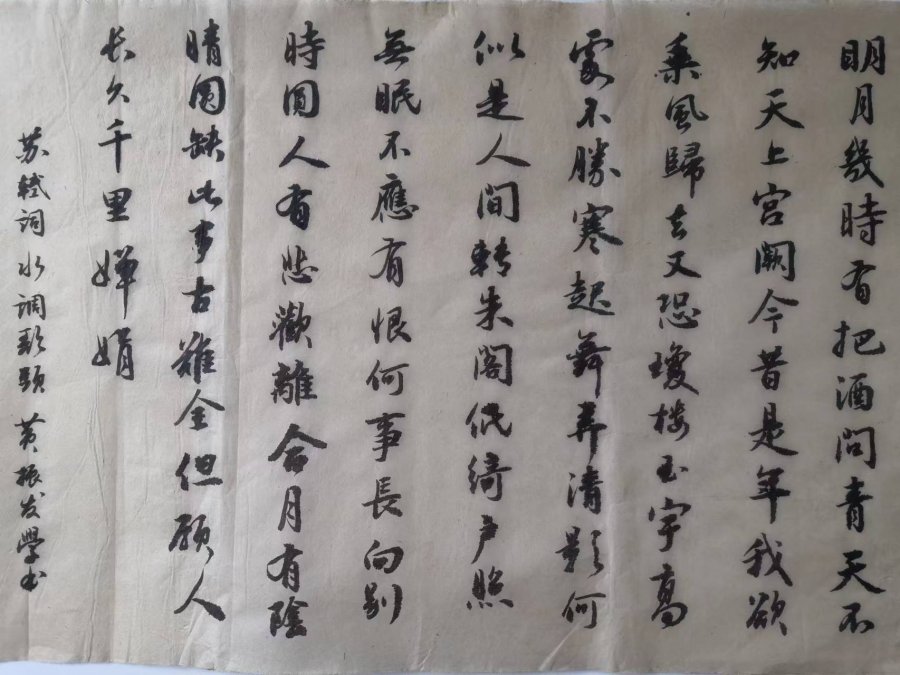 明月幾時有把酒問青天不
知天上宫闕今昔是年我欲
乘風歸去又恐瓊楼玉宇高
處不勝寒起舞弄清影何
似是人間转朱阁低绮户照
無眠不應有恨何事長向别
時圓人有悲歡離合月有陰
晴圆缺此事古難全但願人
长久千里婵娟
苏轼词水调歌头黄振发學书